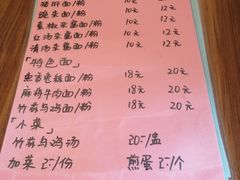 猪肝面/粉 10元 12元
晚来面/粉 10元 12元
春椒杂酱面/粉 10元 12元
红汤杂酱面/粉 10元 12元
清汤杂酱面/粉 10元 12元
「特色面」
鱼香兔丝面/粉 18元 20元
麻辣牛肉面/粉 18元 20元
竹荪乌鸡面/粉 18元 20元
「小菜」
竹荪乌鸡汤 20元/盅
加菜 2元/份 煎蛋 2元/个